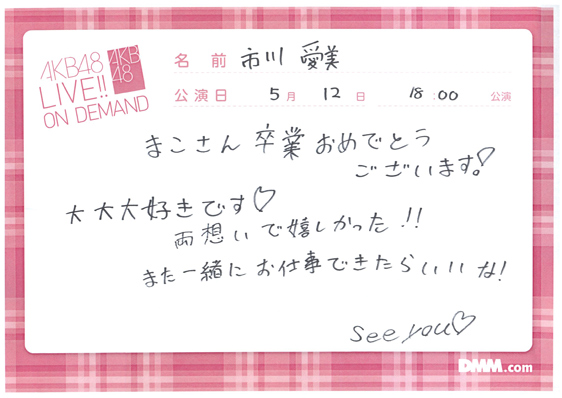 AKB48
LIVE!!
ON DEMAND
AKB
48
名前 市川 愛美
公演日 5月 12日 18:00 公演
まこさん 卒業 おめでとう
ございます♡
大大大好きです♡
両想いで嬉しかった!!
また一緒にお仕事できたらいいな!
see you♡
DMM.com